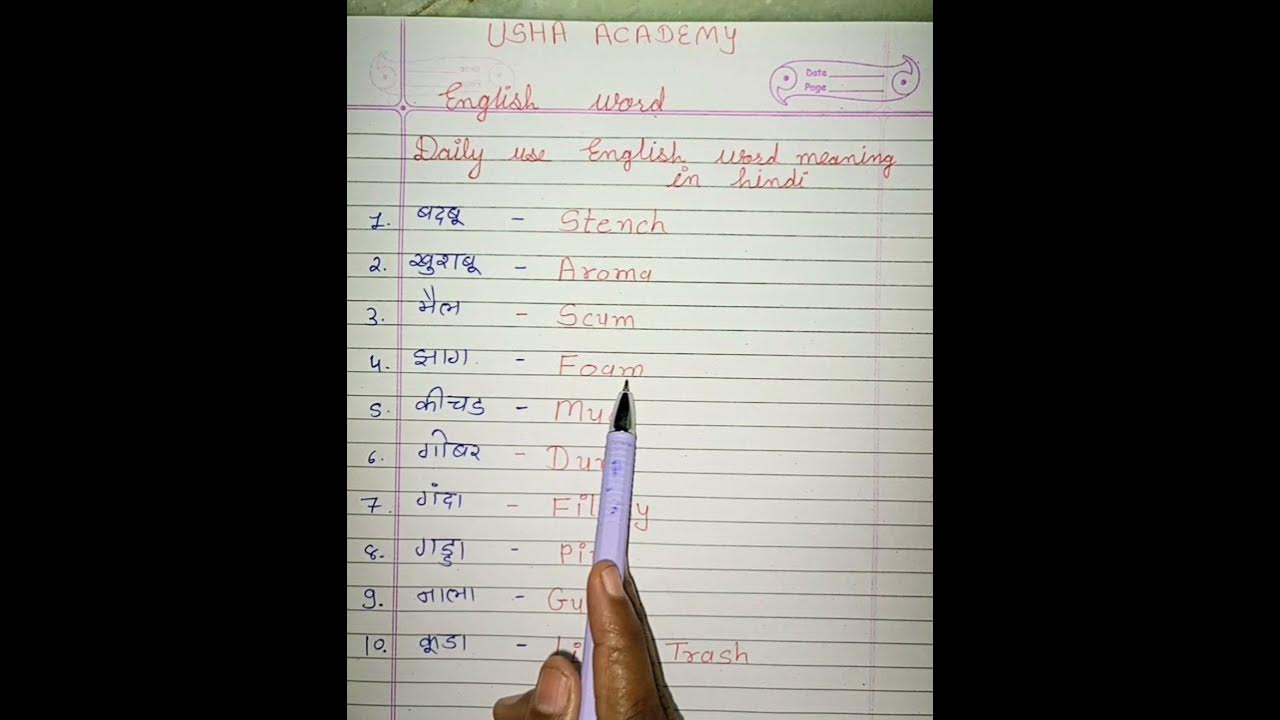 USHA ACADEMY
Date
Page
English word
Daily use English word meaning
in hindi
1. बदबू - Stench
2. खुशबू - Aroma
3. मैल - Scum
4. झाग - Foam
5. कीचड -
6. गोबर -
7. गंदा -
8. गड्डा -
9. नाला -
10. कूडा - Trash